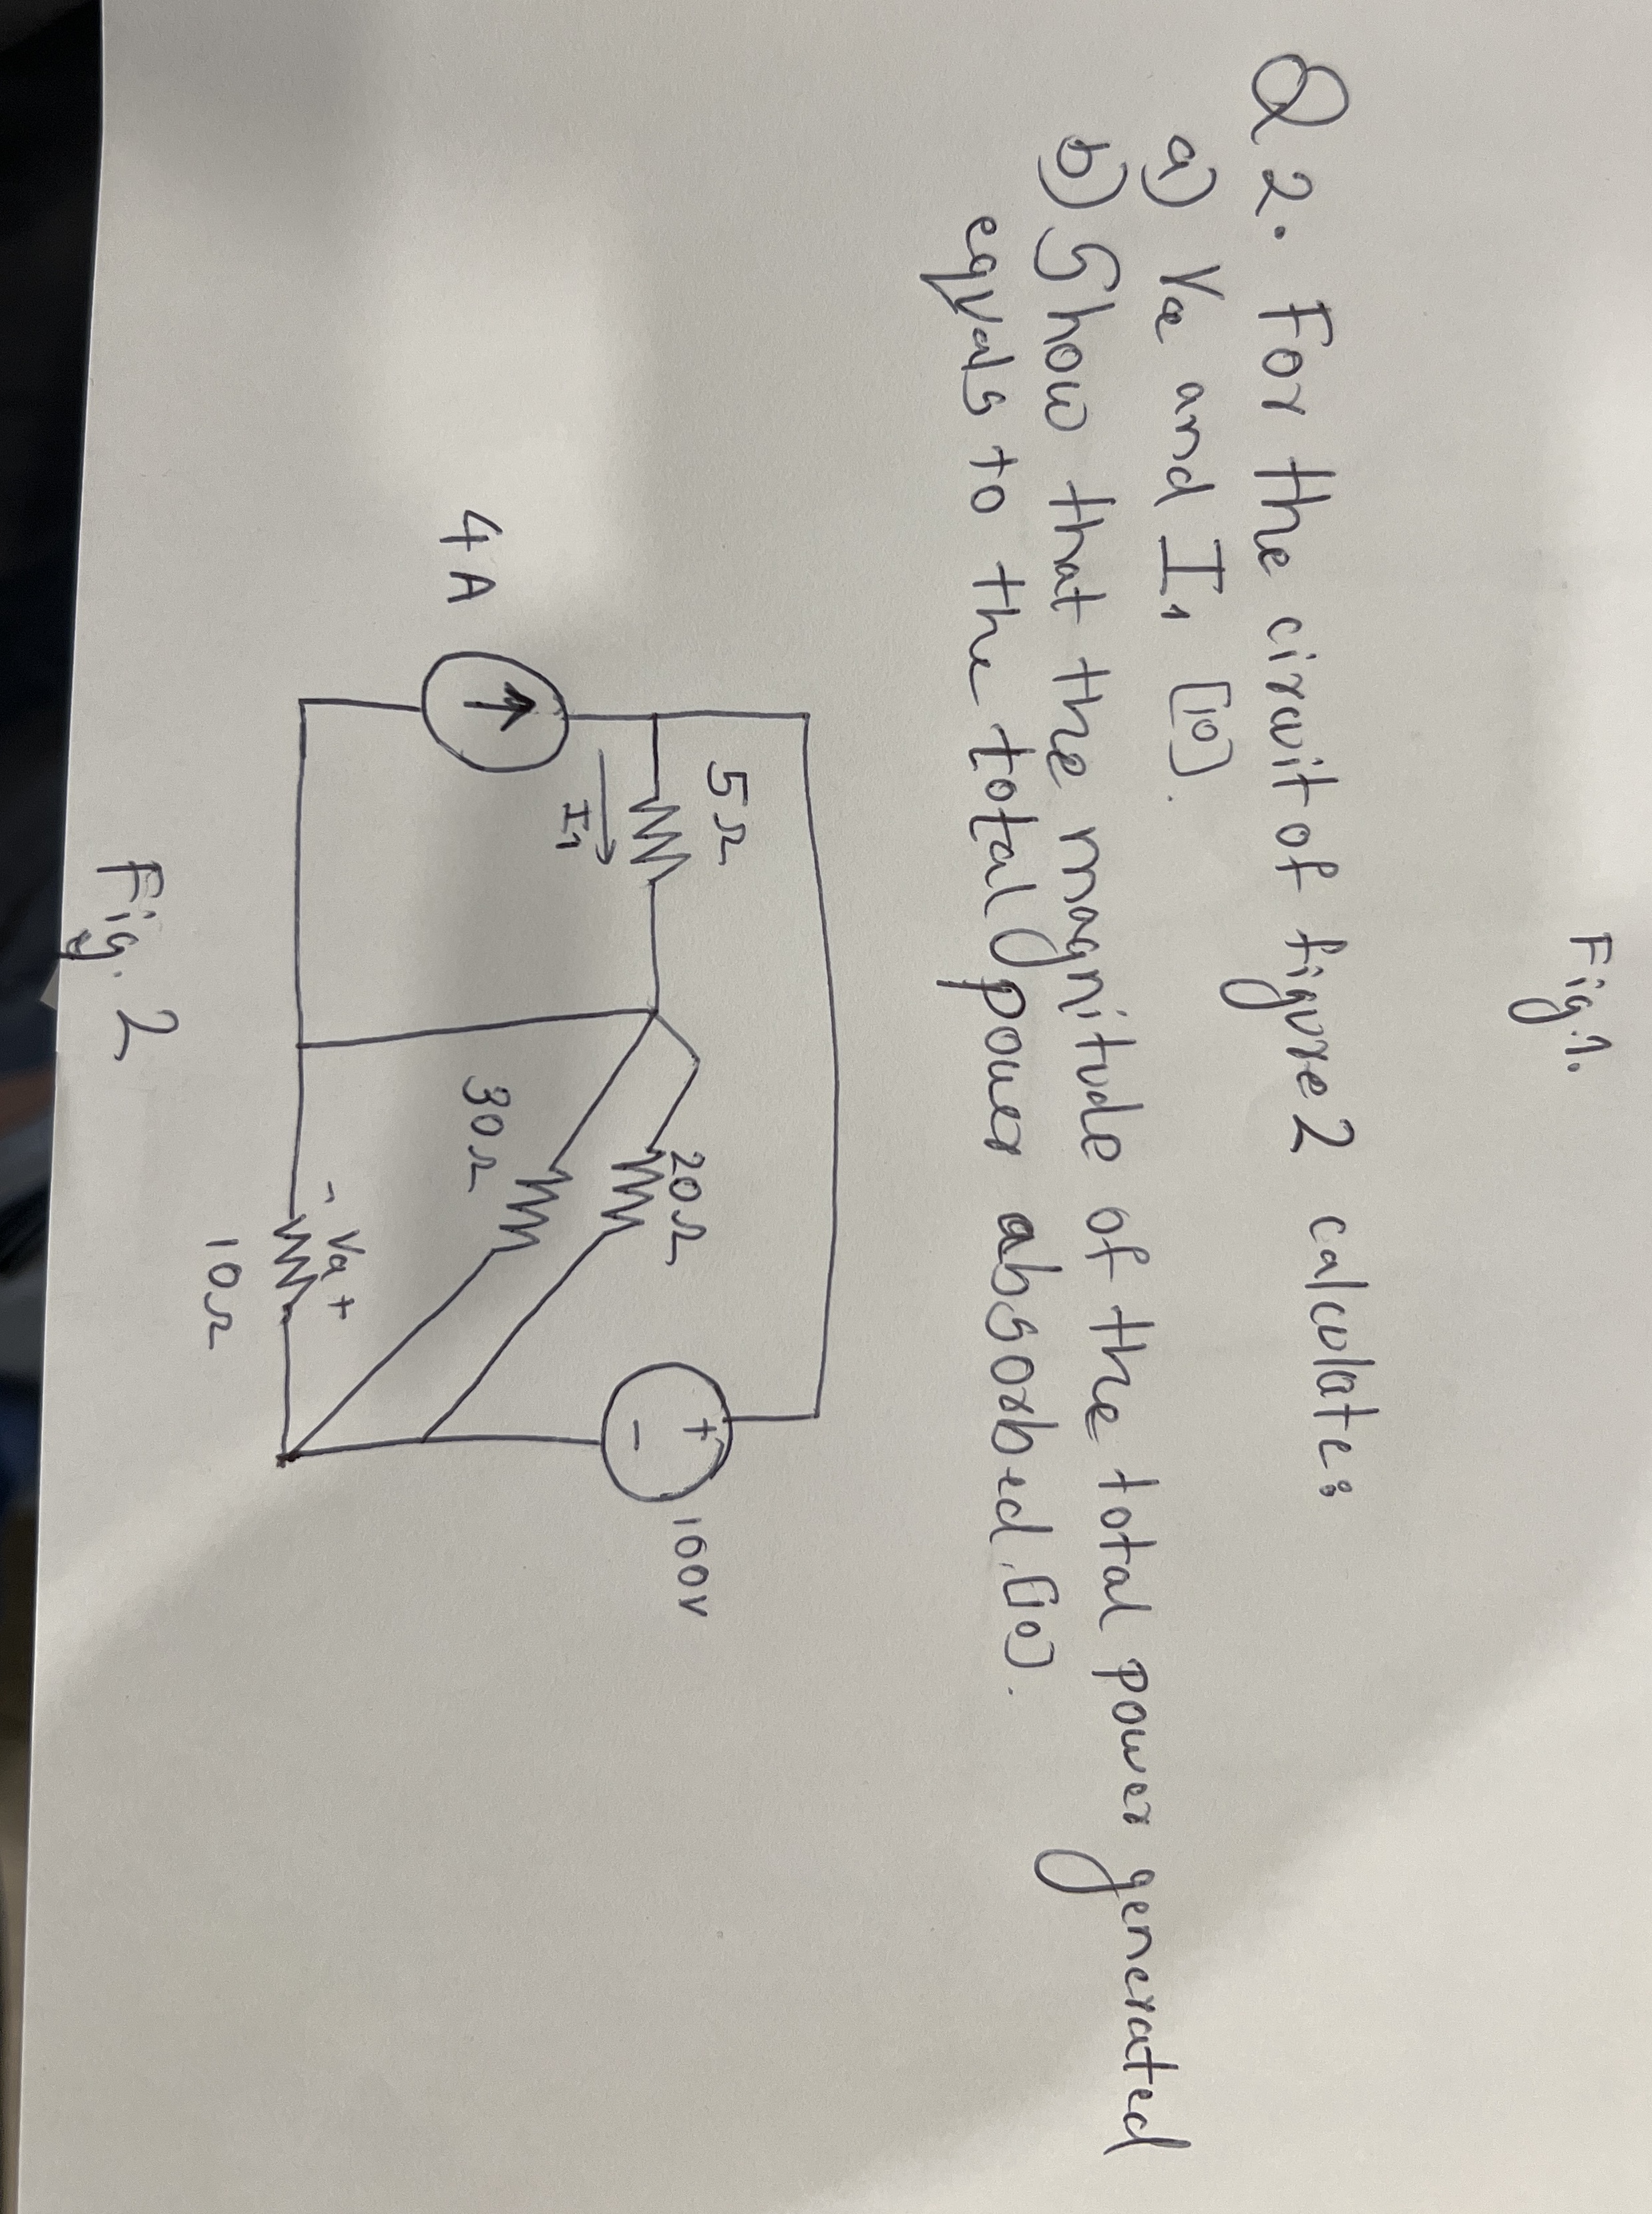 Fig.1.
Q2. For the circuit of figure 2 calculate:
a) Va and I1 [10].
b) Show that the magnitude of the total power generated
equals to the total power absorbed. [10].
5Ω
100V
I1
20Ω
4A
30Ω
- Va +
10Ω
Fig. 2